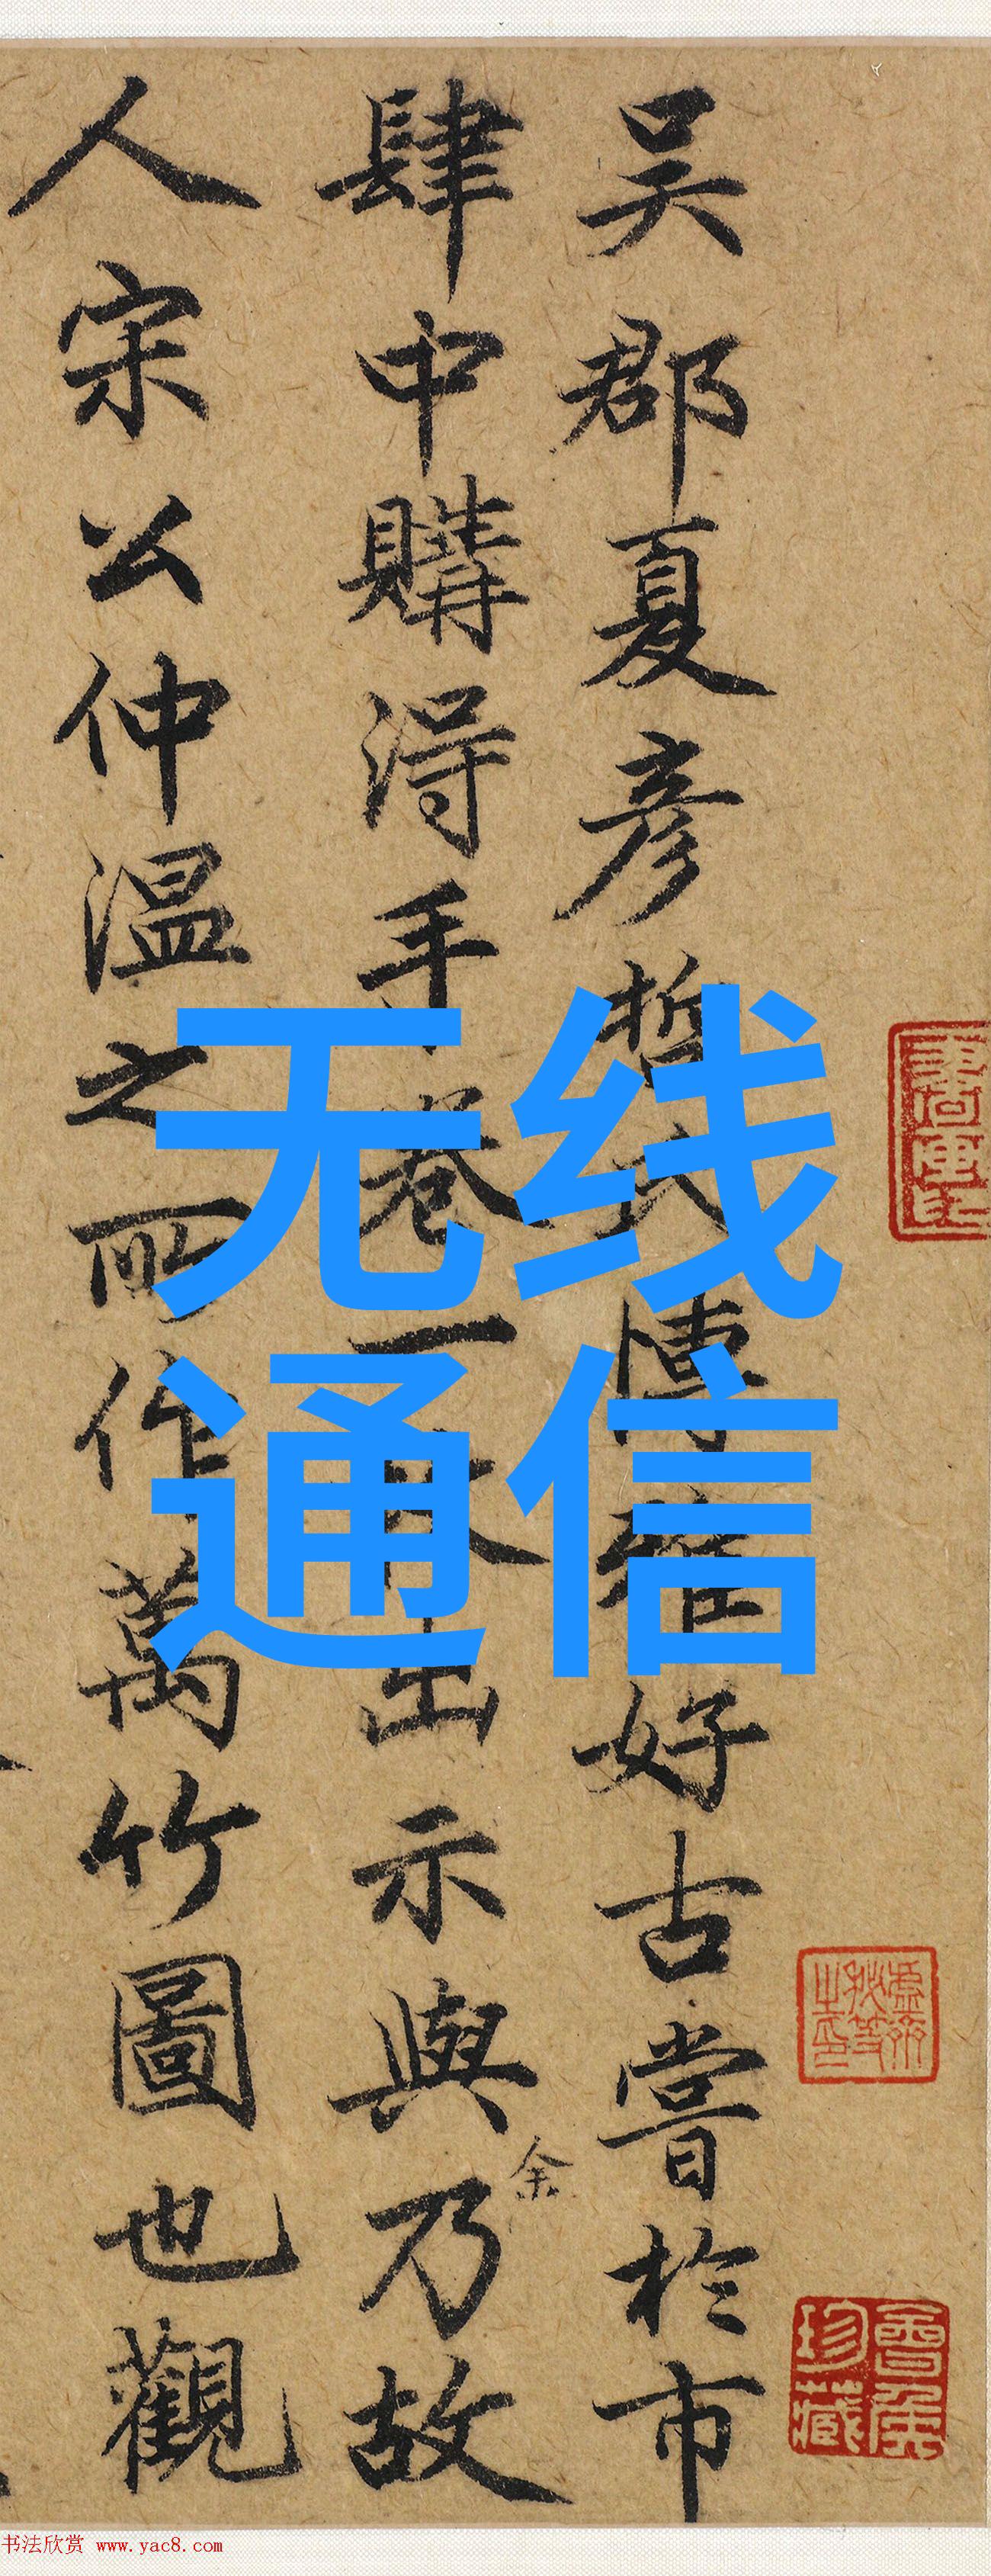 吴郡夏彦哲氏博雅好古嘗於市
肆中購得手卷一
出示與余乃故
人宋公仲温之所作萬竹圖也觀
无线
通信
珍藏
书法欣赏 www.yac8.com